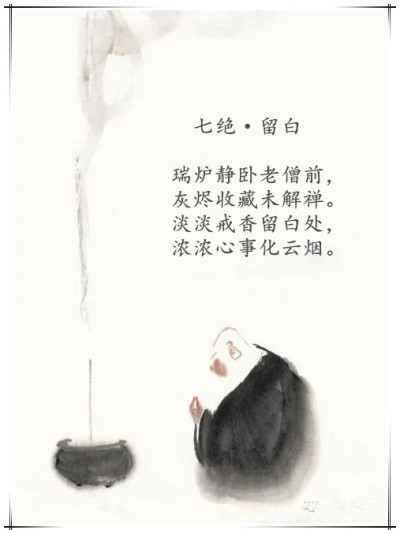 七绝·留白
瑞炉静卧老僧前，
灰烬收藏未解禅。
淡淡戒香留白处，
浓浓心事化云烟。